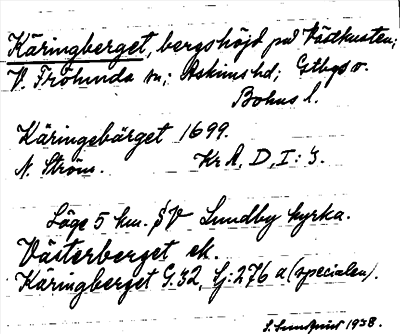 Käringberget, bergshöjd på Västkusten;
V. Frölunda sn; Askims hd; Gtbgs o.
Bohus l.
Käringebärget 1699.
N. Ström. Kr A, D, I: 3.
Läge 5 km. SV Lundby kyrka.
Västerberget ek.
Käringberget G.32, Sj:276 a (specialen).
S. Lundqvist 1938.